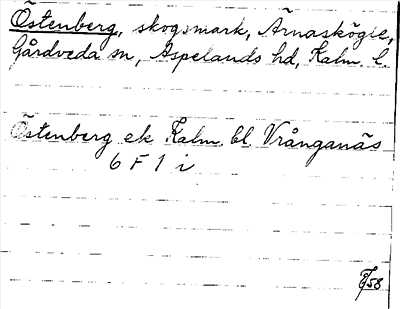 Östenberg, skogsmark, Årnaskögle,
Gårdveda sn, Aspelands hd, Kalm. l.
Östenberg ek Kalm. bl. Vrånganäs
6 F 1 i
/58